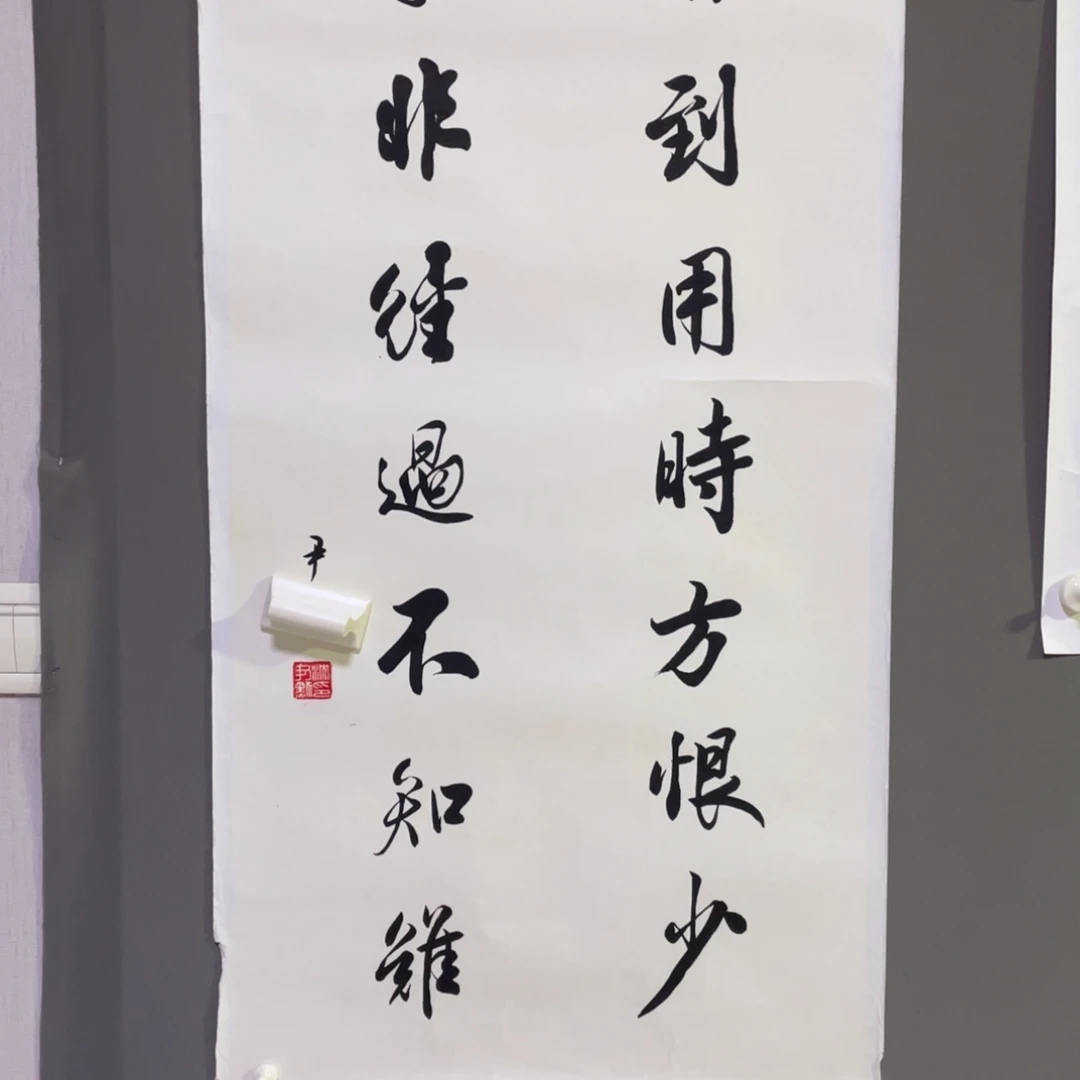 到用時方恨少
非經過不知難
尹